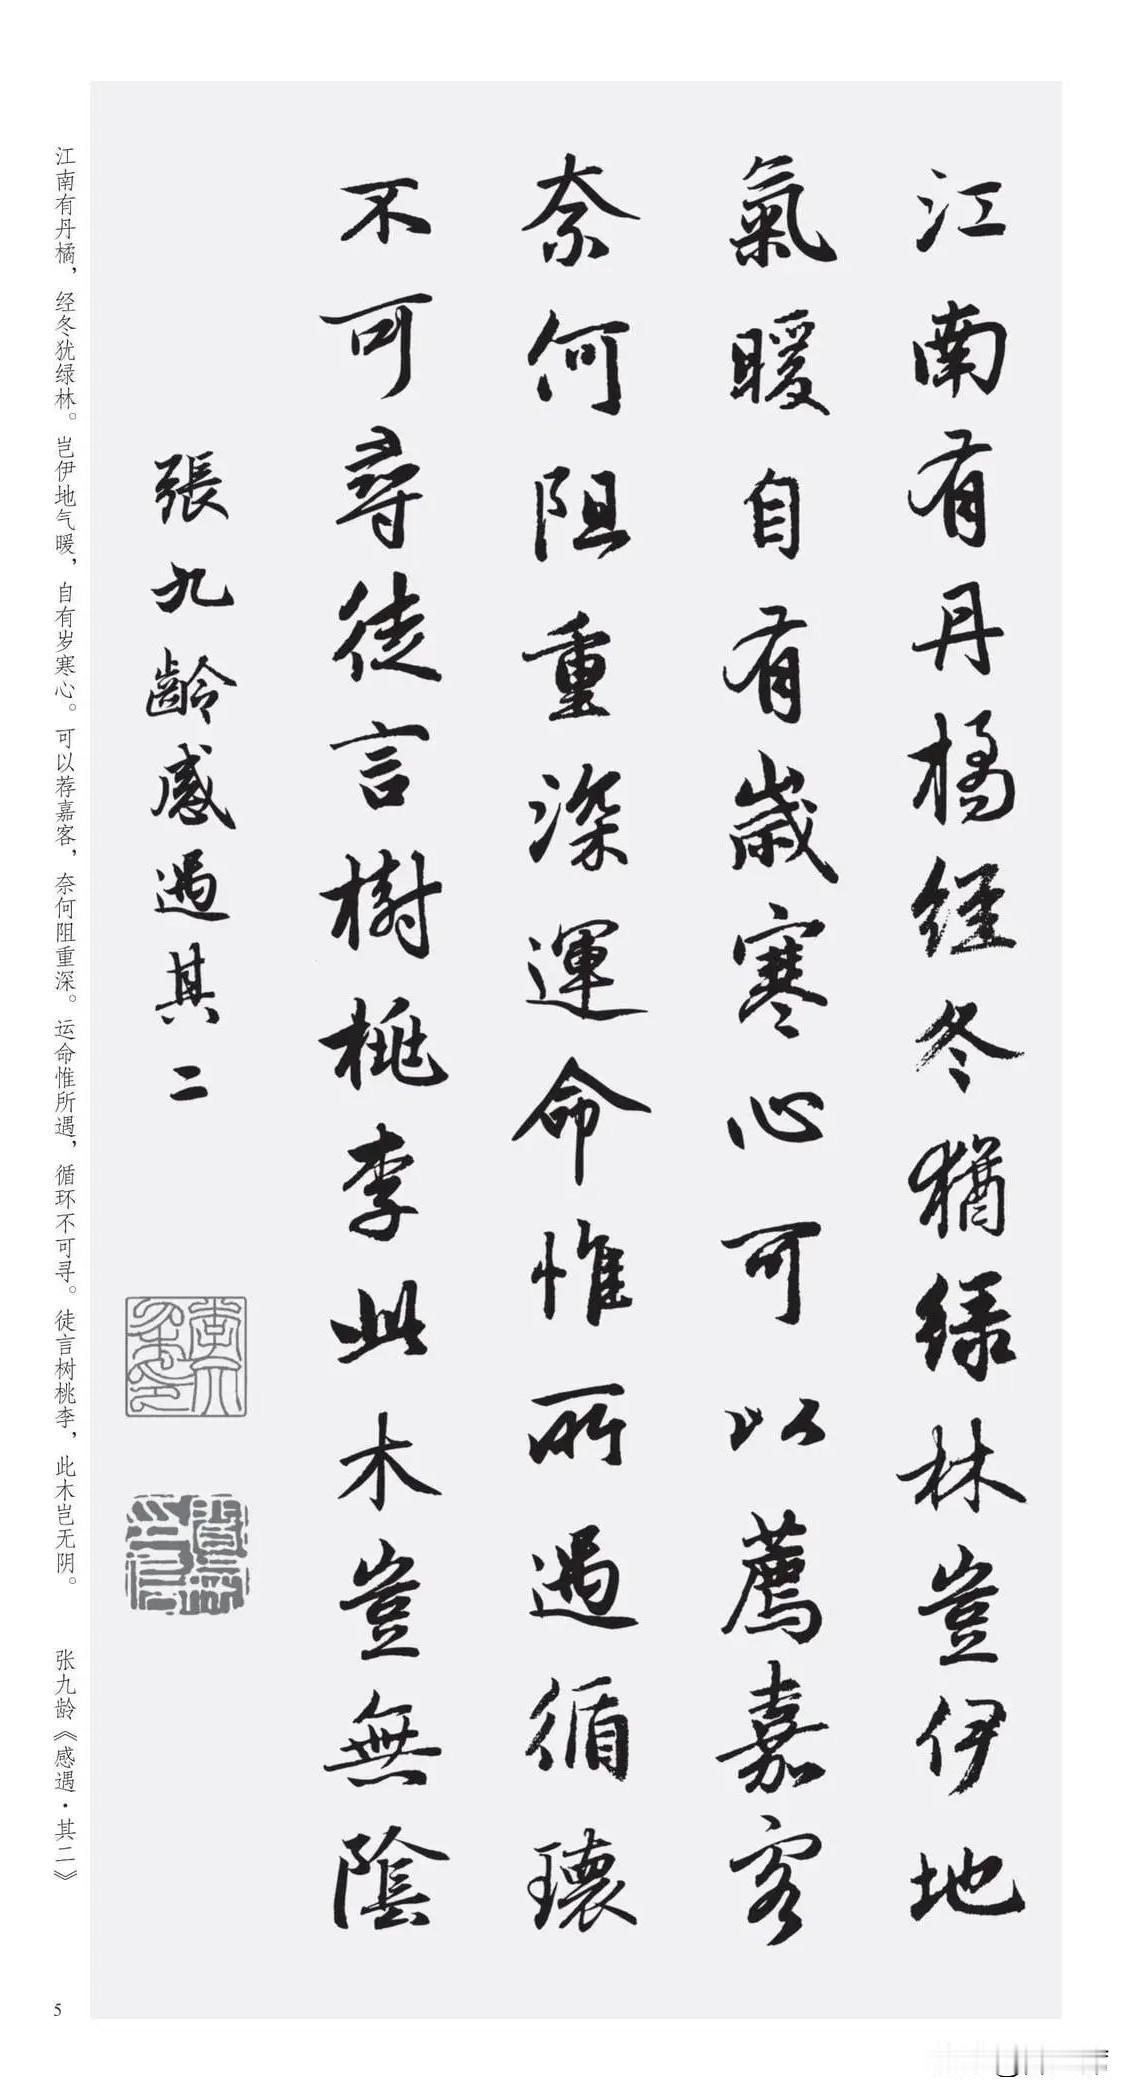 江南有丹橘經冬猶绿林豈伊地
氣暖自有歲寒心可以薦嘉客
奈何阻重深運命惟所遇循環
不可尋徒言樹桃李此木豈無陰
張九齡感遇其二
江南有丹橘，经冬犹绿林。岂伊地气暖，自有岁寒心。可以荐嘉客，奈何阻重深。运命惟所遇，循环不可寻。徒言树桃李，此木岂无阴。 张九龄《感遇·其二》
5